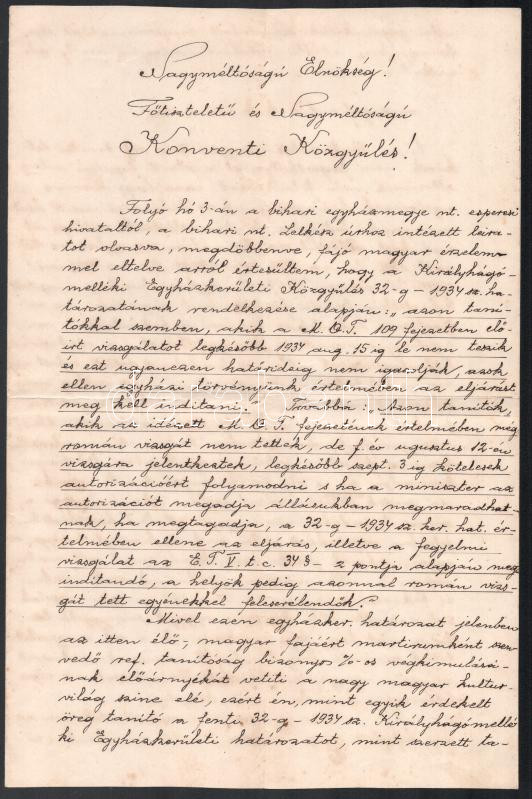 Nagyméltóságú Elnökség!
Főtiszteletű és Nagyméltóságú
Konventi Közgyűlés!
Folyó hó 3-án a bihari egyházmegye nt. esperesi
hivataltól, a bihari nt. Lelkész úrhoz intézett leira-
tot olvasva, megdöbbenve, fájó magyar érzelem-
mel eltelve arról értesültem, hogy a Királyhágó-
melléki Egyházkerületi Közgyűlés 32-g-1934 sz. ha-
tározatának rendelkezése alapján: „azon taní-
tókkal szemben, akik a M.O.T. 109 fejezetben elő-
írt vizsgálatot legkésőbb 1934 aug. 15 ig le nem teszik
és ezt ugyanezen határideig nem igazolják, azok
ellen egyházi törvényünk értelmében az eljárást
meg kell indítani." Továbbá: „Azon tanítók,
akik az idézett M.O.T. fejezetének értelmében még
román vizsgát nem tettek, de f. év ugusztus 12-én
vizsgára jelentkeztek, legkésőbb szept. 3 ig kötelesek
autorizációért folyamodni s ha a miniszter az
autorizációt megadja állásukban megmaradhat-
nak, ha megtagadja, a 32-g-1934 sz. ker. hat. ér-
telmében ellene az eljárás, illetve a fegyelmi
vizsgálat az E.T. V. t.c. 34 §- 2 pontja alapján meg
indítandó, a helyök pedig azonnal román vizs-
gát tett egyénekkel felcserélendők."
Mivel ezen egyházker. határozat jelenben
az itten élő-, magyar fajáért martirumként szen-
vedő ref. tanítóság bizonyos %-os végkimulásá-
nak előárnyékát vetíti a nagy magyar kultur-
világ színe elé, ezért én, mint egyik érdekelt
öreg tanító a fenti 32-g-1934 sz. Királyhágómellé
ki Egyházkerületi határozatot, mint szerzett ta-